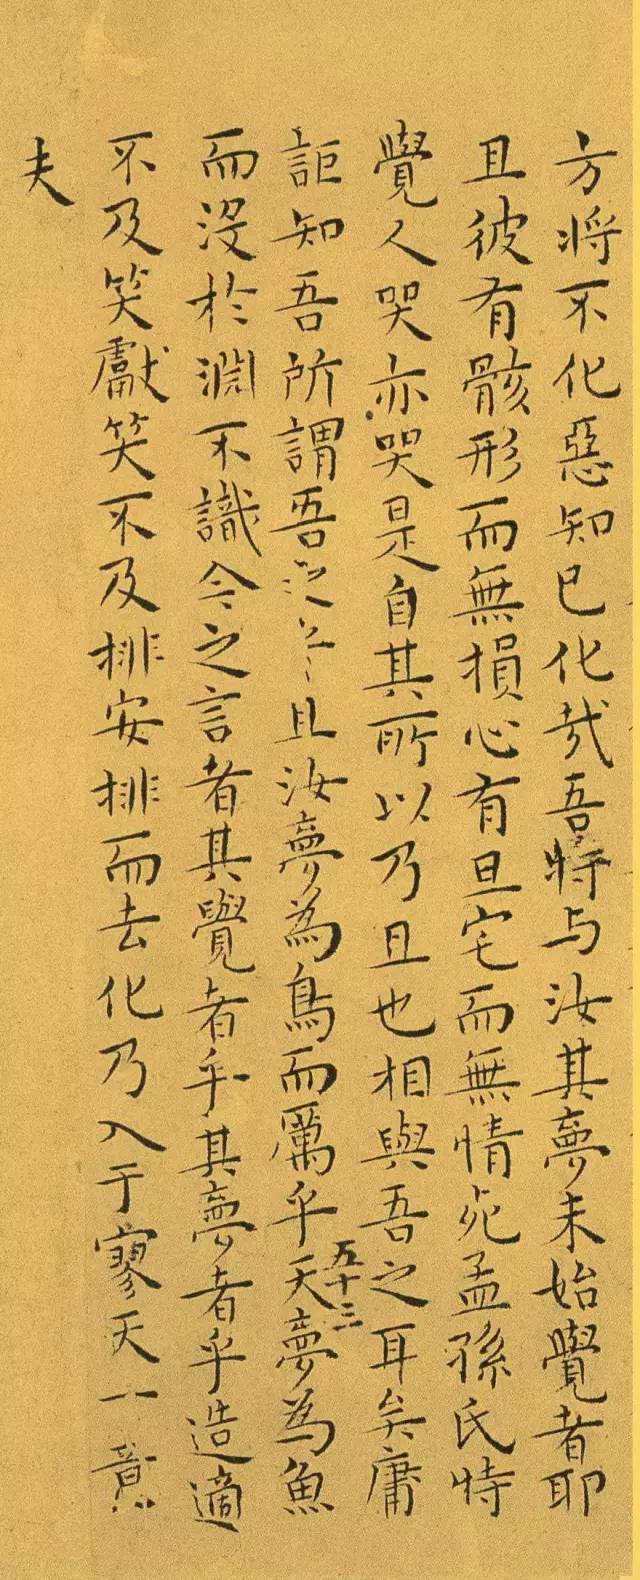 方將不化惡知已化哉吾特与汝其夢未始覺者耶
且彼有骸形而無損心有旦宅而無情死孟孫氏特
覺人哭亦哭是自其所以乃且也相與吾之耳矣庸
五十三
詎知吾所謂吾之乎且汝夢為鳥而厲乎天夢為魚
而沒於淵不識今之言者其覺者乎其夢者乎造適
不及笑獻笑不及排安排而去化乃入于寥天一意
夫